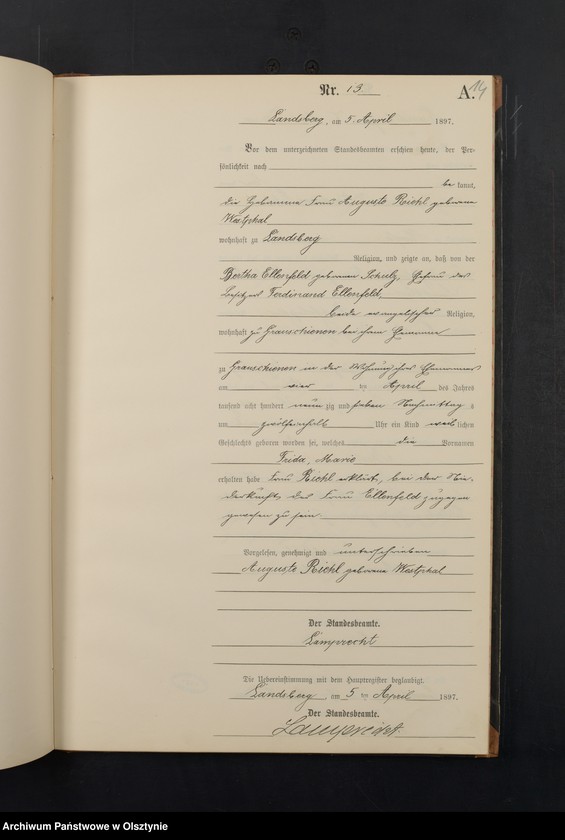 Nr. 13
A. 14
Landsberg, am 5. April 1897.
Vor dem unterzeichneten Standesbeamten erschien heute, der Per-
sönlichkeit nach
be kannt,
die Hebamme Frau Auguste Riehl geborene
Westphal
wohnhaft zu Landsberg
Religion, und zeigte an, daß von der
Bertha Ellenfeld geborenen Schulz, Ehefrau des
Besitzers Ferdinand Ellenfeld,
beide evangelischer Religion,
wohnhaft zu Grauschienen bei ihrem Ehemanne
zu Grauschienen in der Wohnung ihres Ehemannes
am vier ten April des Jahres
tausend acht hundert neun zig und sieben Nachmittags
um zwölfeinhalb Uhr ein Kind weib lichen
Geschlechts geboren worden sei, welches die Vornamen
Frida, Marie
erhalten habe. Frau Riehl erklärt, bei der Nie-
derkunft der Frau Ellenfeld zugegen
gewesen zu sein.
Vorgelesen, genehmigt und unterschrieben
Auguste Riehl geborene Westphal
Der Standesbeamte.
Lamprecht
Die Uebereinstimmung mit dem Hauptregister beglaubigt.
Landsberg, am 5 ten April 1897.
Der Standesbeamte.
Lamprecht.
Archiwum Państwowe w Olsztynie